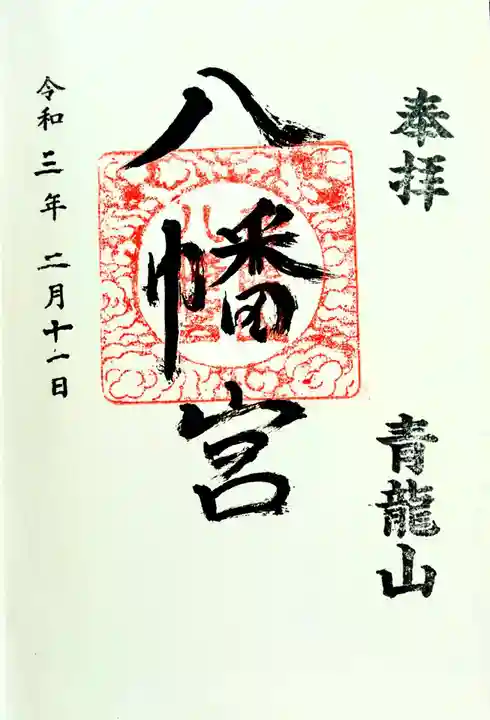 奉拝
青龍山
八幡宮
令和三年二月十一日